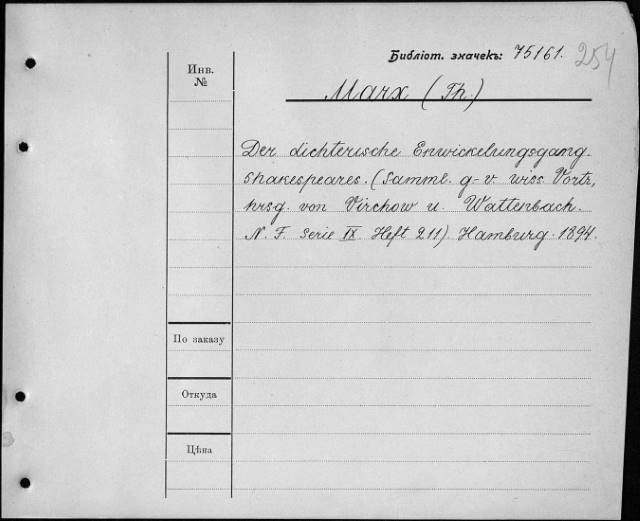 Библіот. значекъ: 75161. 254
Инв.
№
Marx (Th.)
Der dichterische Enwickelungsgang
Shakespeares. (Samml. g.-v. wiss. Vortr,
hrsg. von Virchow u. Wattenbach.
N. F. Serie IX. Heft 211). Hamburg. 1894.
По заказу
Откуда
Цѣна